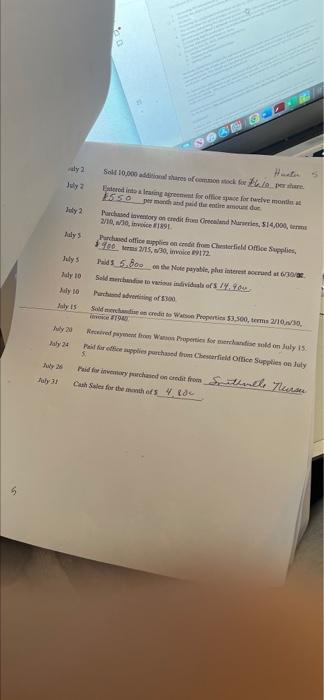 Hunter S
July 2 Sold 10,000 additional shares of common stock for per share.
July 2 Entered into a leasing agreement for office space for twelve months at
$550 per month and paid the entire amount due.
July 2 Purchased inventory on credit from Greenland Nurseries, $14,000, terms
2/10, n/30, invoice #1891.
July 5 Purchased office supplies on credit from Chesterfield Office Supplies,
$900 terms 2/15, n/30, invoice #9172.
July 5 Paid $ 5,800 on the Note payable, plus interest accrued at 6/30/
July 10 Sold merchandise to various individuals of $ 14,900
July 10 Purchased advertising of $300.
July 15 Sold merchandise on credit to Watson Properties $3,500, terms 2/10,n/30,
invoice #1940.
July 20 Received payment from Watson Properties for merchandise sold on July 15.
July 24 Paid for office supplies purchased from Chesterfield Office Supplies on July
5.
July 26 Paid for inventory purchased on credit from Smithville
July 31 Cash Sales for the month of $ 4,800
5